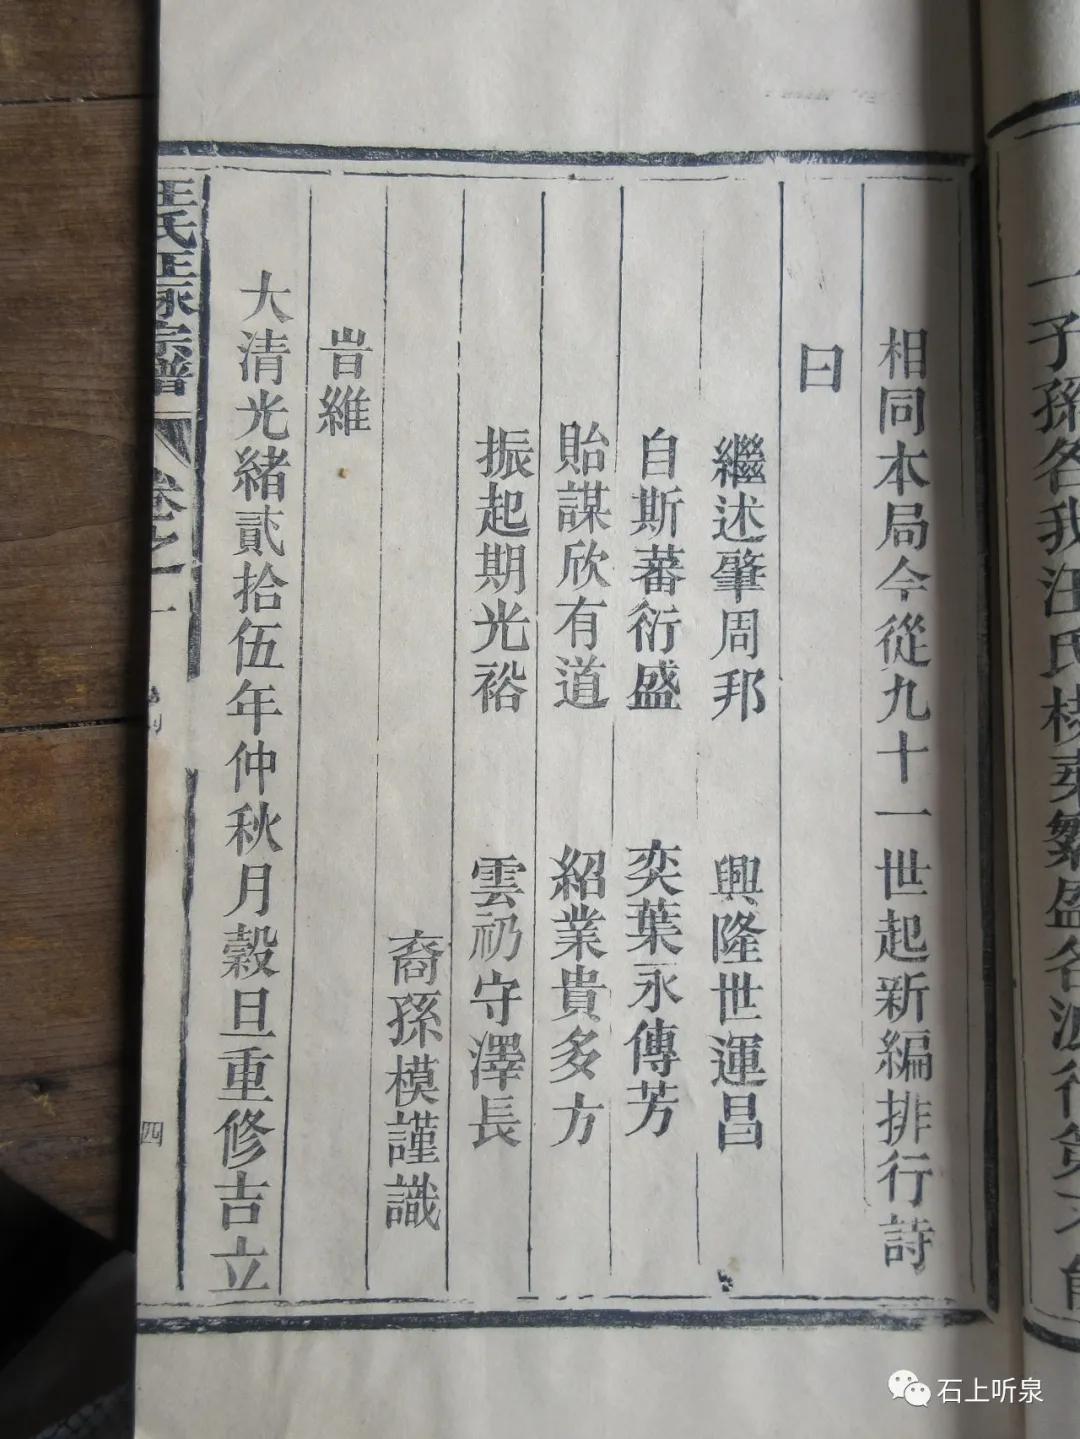 一子孫各我汪氏枝葉繁盛名派行第不能
相同本局今從九十一世起新編排行詩
曰
繼述肇周邦 興隆世運昌
自斯蕃衍盛 奕葉永傳芳
貽謀欣有道 紹業貴多方
振起期光裕 雲礽守澤長
裔孫模謹識
旹維
大清光緒貳拾伍年仲秋月穀旦重修吉立
汪氏正脉宗譜 卷之一
四
石上听泉